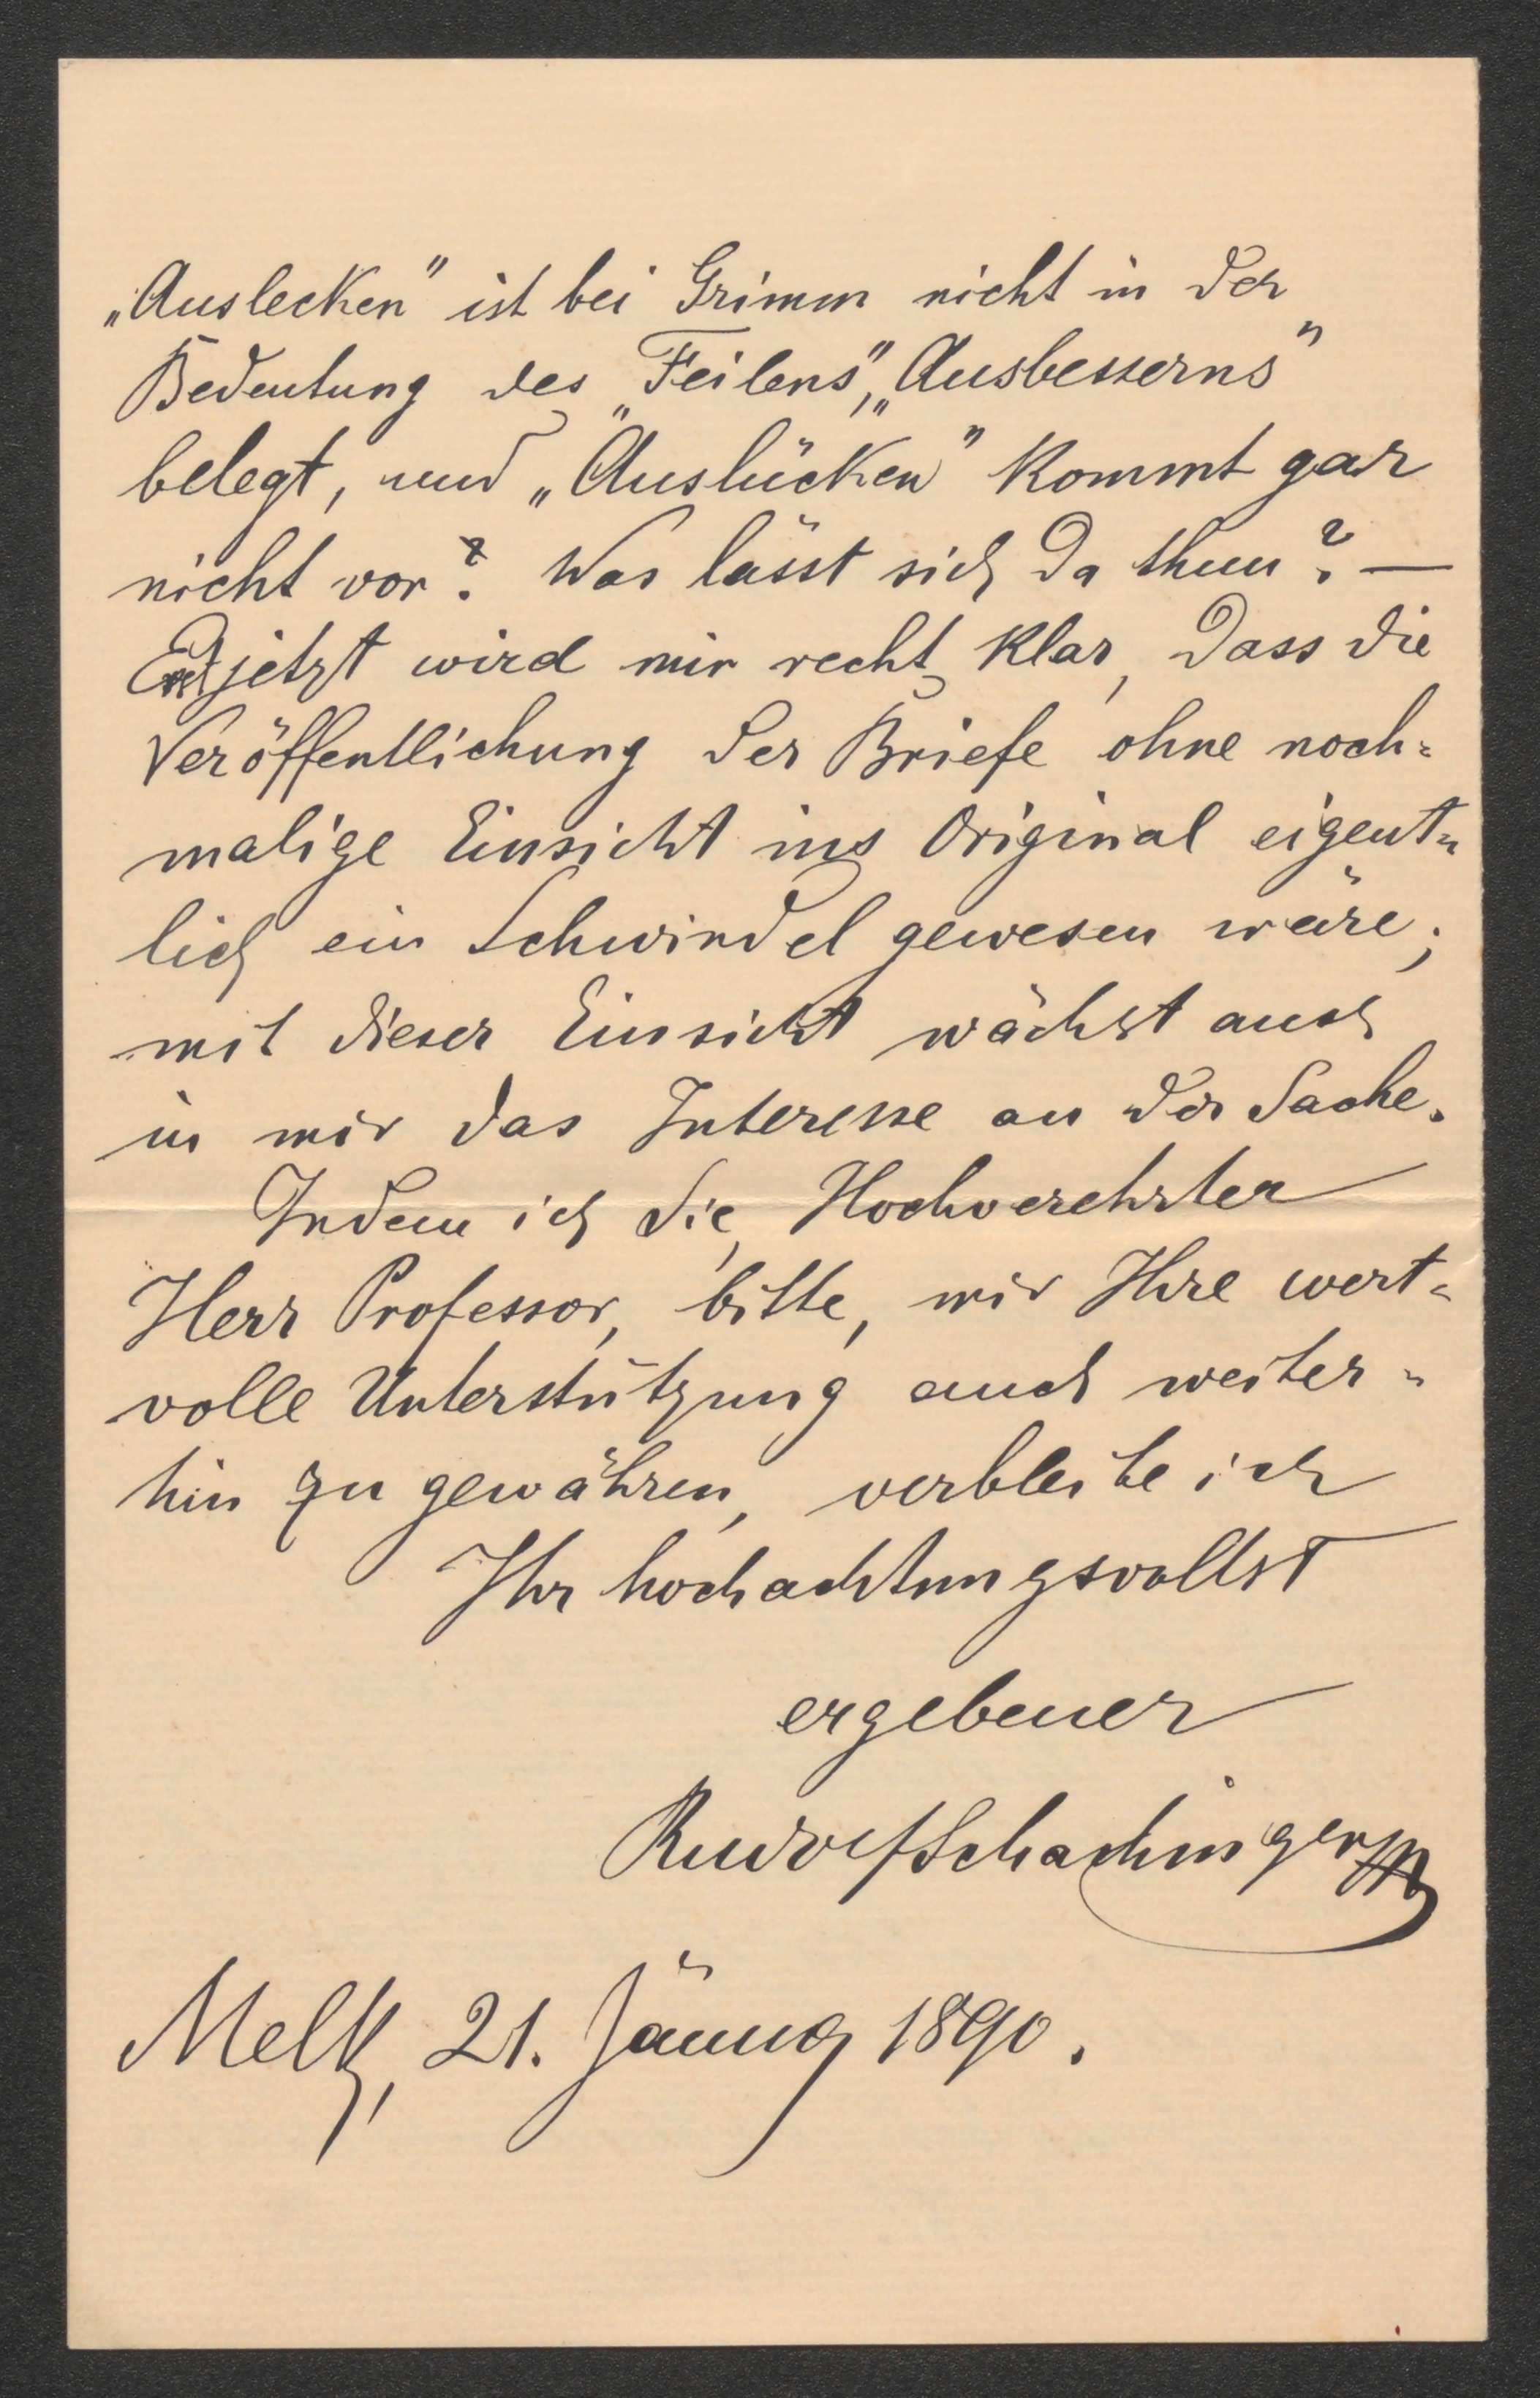 „Auslecken" ist bei Grimm nicht in der
Bedeutung des „Feilens", „Ausbesserns"
belegt, und „Auslücken" kommt gar
nicht vor? Was lässt sich da thun? —
Erst jetzt wird mir recht klar, dass die
Veröffentlichung der Briefe ohne noch=
malige Einsicht ins Original eigent=
lich ein Schwindel gewesen wäre;
mit dieser Einsicht wächst auch
in mir das Interesse an der Sache.
Indem ich Sie, Hochverehrter
Herr Professor, bitte, mir Ihre wert=
volle Unterstützung auch weiter=
hin zu gewähren, verbleibe ich
Ihr hochachtungsvollst
ergebener
Rudolf Schachinger
Melk, 21. Jänner 1890.